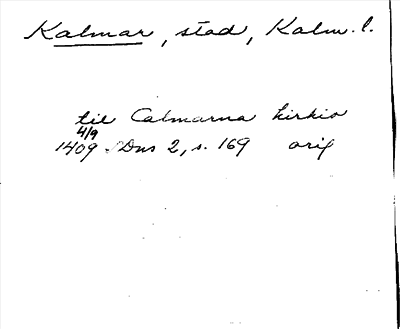 Kalmar, stad, Kalm. l.
til Calmarna kirkio
4/9
1409 Dns 2, s. 169 orig